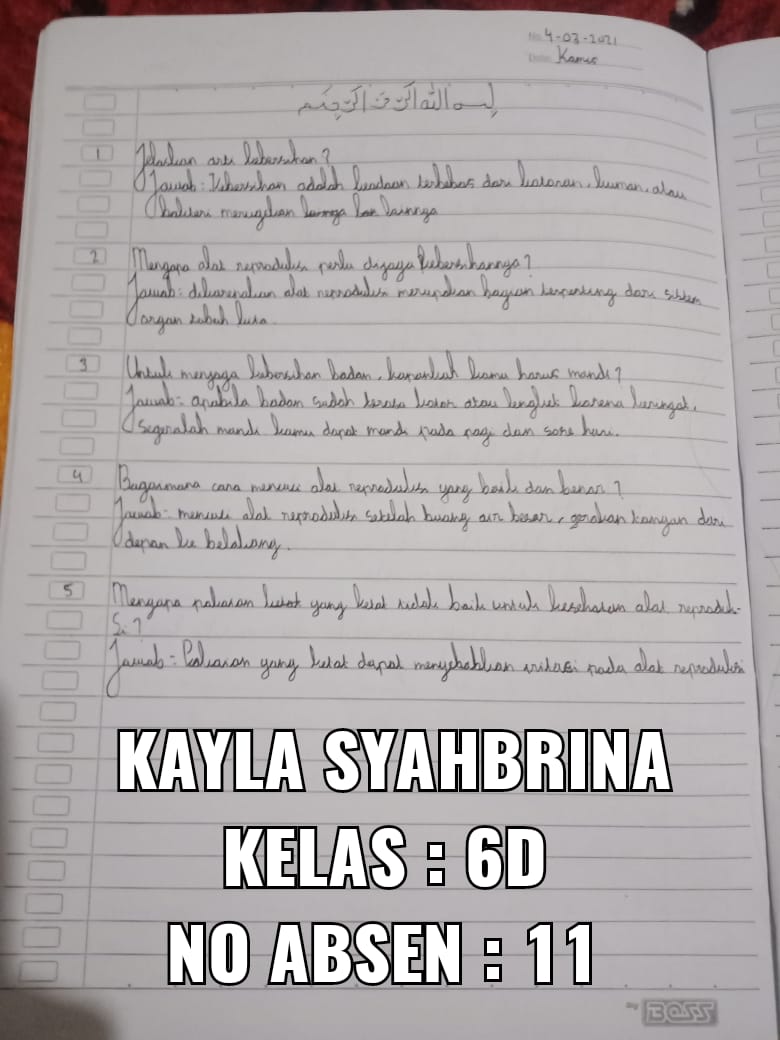 No. 4-03-2021
Date: Kamis
بسم الله الرحمن الرحيم
1 Jelaskan arti kebersihan?
Jawab: Kebersihan adalah keadaan terbebas dari kotoran, kuman, atau
bakteri merugikan lainnya
2 Mengapa alat reproduksi perlu dijaga kebersihannya?
Jawab: dikarenakan alat reproduksi merupakan bagian terpenting dari sistem
organ tubuh kita.
3 Untuk menjaga kebersihan badan, kapankah kamu harus mandi?
Jawab= apabila badan sudah terasa kotor atau lengket karena keringat,
segeralah mandi kamu dapat mandi pada pagi dan sore hari.
4 Bagaimana cara mencuci alat reproduksi yang baik dan benar?
Jawab= mencuci alat reproduksi setelah buang air besar, gerakan tangan dari
depan ke belakang.
5 Mengapa pakaian ketat yang ketat tidak baik untuk kesehatan alat reproduk-
si?
Jawab= Pakaian yang ketat dapat menyebabkan iritasi pada alat reproduksi
KAYLA SYAHBRINA
KELAS : 6D
NO ABSEN : 11
by BOSS